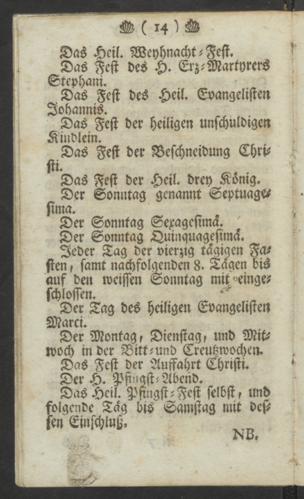 ( 14 )
Das Heil. Weyhnacht-Fest.
Das Fest des H. Erz-Martyrers
Stephani.
Das Fest des Heil. Evangelisten
Johannis.
Das Fest der heiligen unschuldigen
Kindlein.
Das Fest der Beschneidung Chri-
sti.
Das Fest der Heil. drey König.
Der Sonntag genannt Septuage-
sima.
Der Sonntag Sexagesimä.
Der Sonntag Quinquagesimä.
Jeder Tag der vierzig tägigen Fa-
sten, samt nachfolgenden 8. Tägen bis
auf den weissen Sonntag mit einge-
schlossen.
Der Tag des heiligen Evangelisten
Marci.
Der Montag, Dienstag, und Mit-
woch in der Bitt- und Creutzwochen.
Das Fest der Auffahrt Christi.
Der H. Pfingst-Abend.
Das Heil. Pfingst-Fest selbst, und
folgende Täg bis Samstag mit des-
sen Einschluß.
NB.